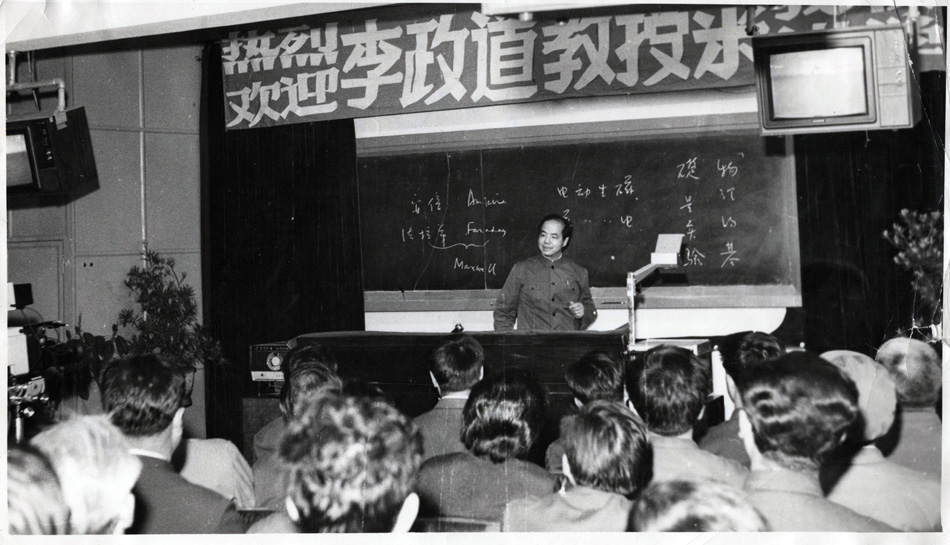 热烈
欢迎
李政道教授来
安培
法拉第 Faraday
Maxwell
电动生磁
电
物理的基
礎是实驗